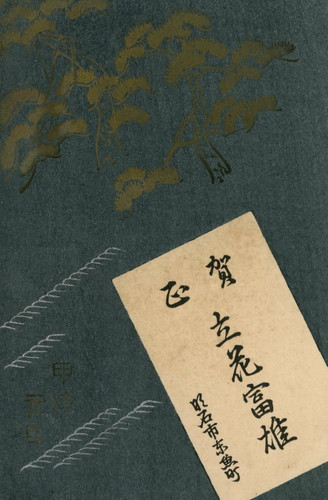 賀正
立花富雄
明石市東魚町